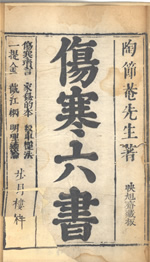 陶節菴先生著
映旭齋藏板
傷寒六書
傷寒瑣言 家秘的本 殺車槌法
一提金 截江網 明理續論
步月樓梓